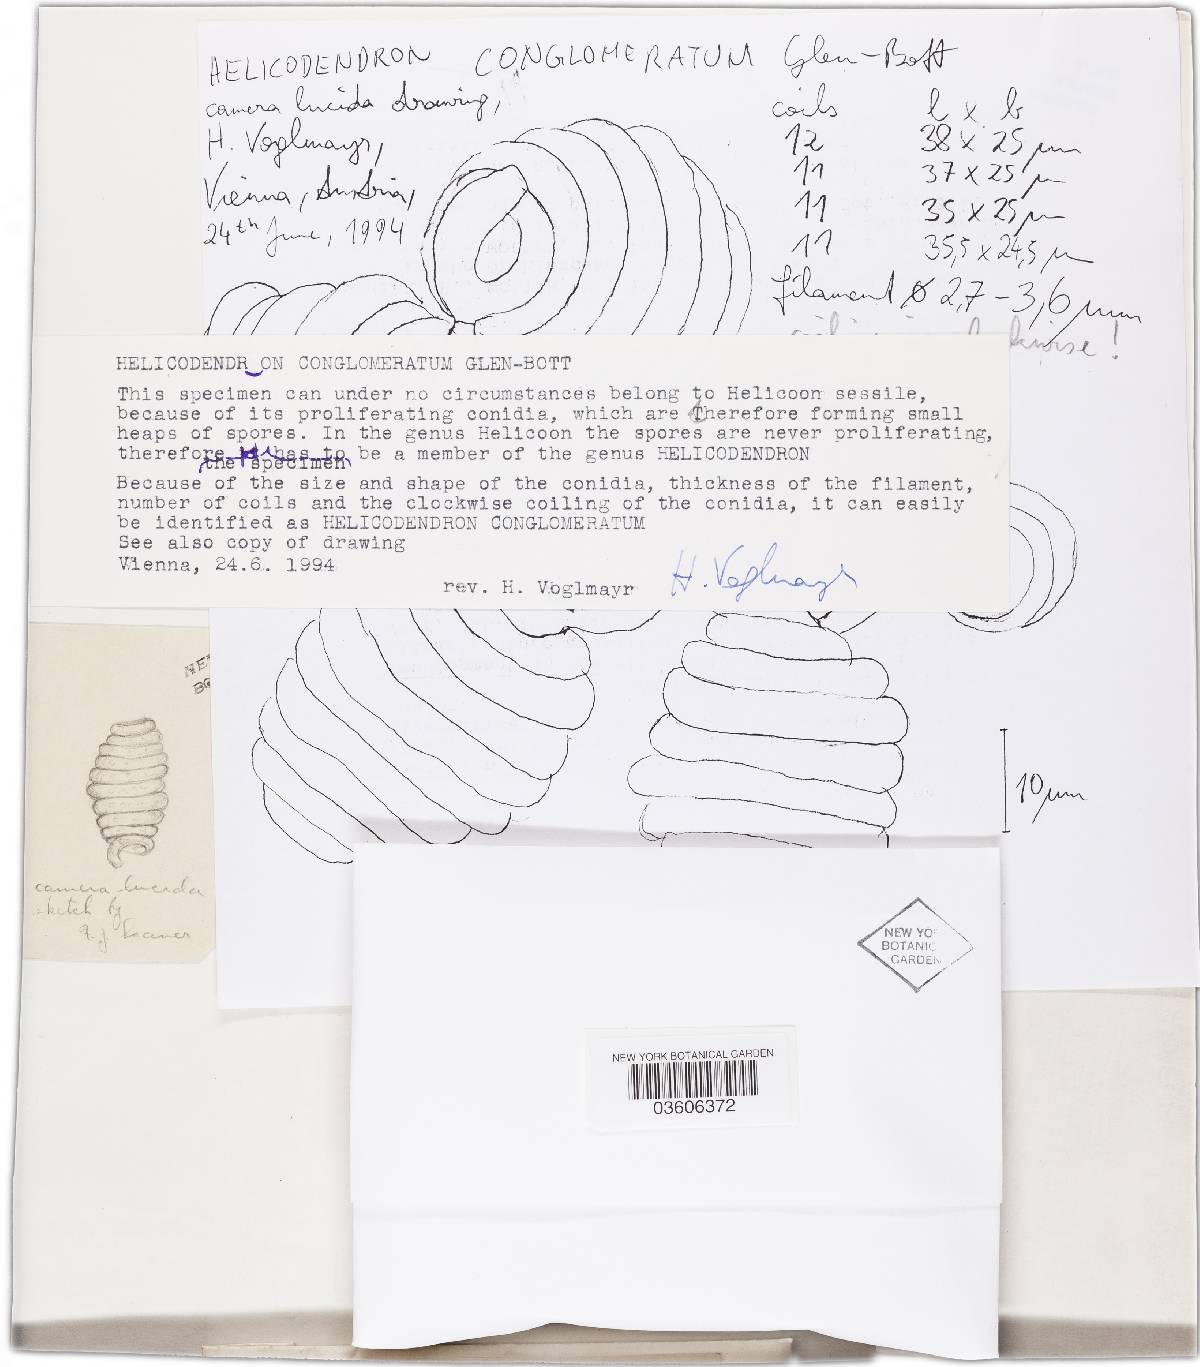 HELICODENDRON CONGLOMERATUM Glen-Bott
camera lucida drawing,
H. Voglmayr,
Vienna, Austria,
24th June, 1994
coils l x b
12 38 x 25 µm
11 37 x 25 µm
11 35 x 25 µm
11 35,5 x 24,5 µm
filament ø 2,7 - 3,6 µm
HELICODENDR ON CONGLOMERATUM GLEN-BOTT
This specimen can under no circumstances belong to Helicoon sessile,
because of its proliferating conidia, which are therefore forming small
heaps of spores. In the genus Helicoon the spores are never proliferating,
therefore it has to be a member of the genus HELICODENDRON
the specimen
Because of the size and shape of the conidia, thickness of the filament,
number of coils and the clockwise coiling of the conidia, it can easily
be identified as HELICODENDRON CONGLOMERATUM
See also copy of drawing
Vienna, 24.6. 1994
rev. H. Voglmayr H. Voglmayr
camera lucida
sketch by
10 µm
NEW YO
BOTANIC
GARDEN
NEW YORK BOTANICAL GARDEN
03606372